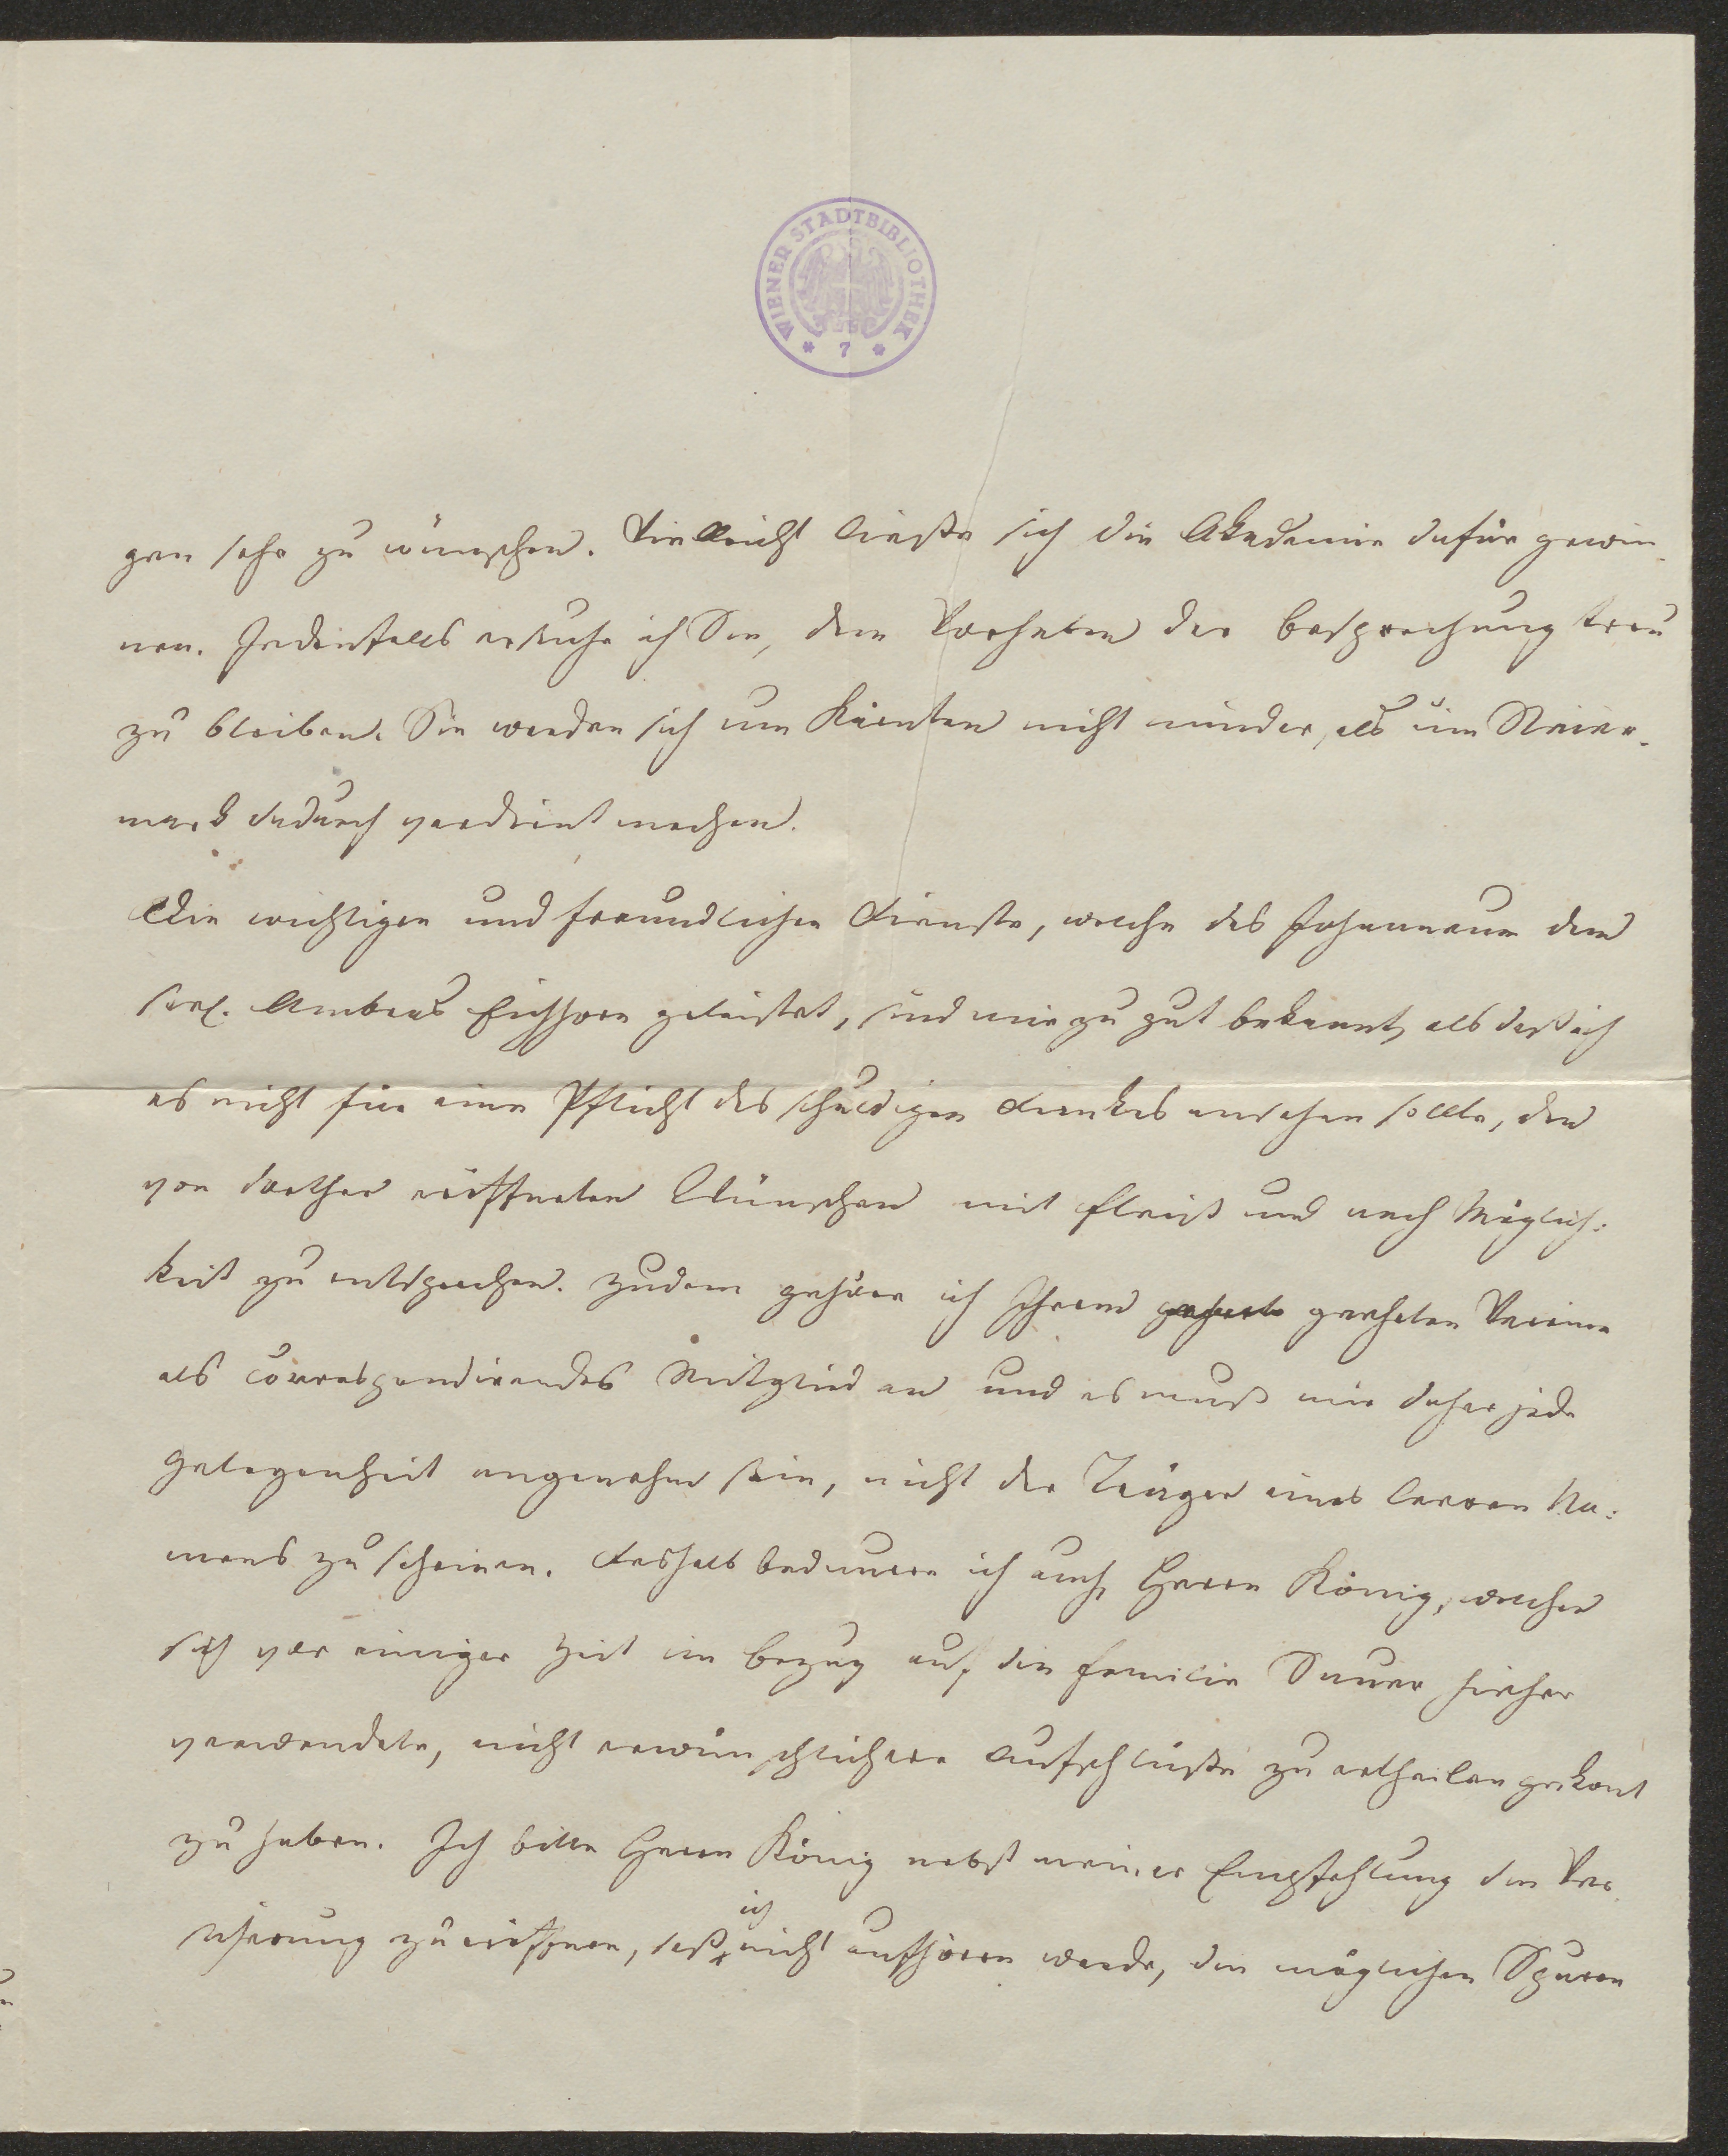 WIENER STADTBIBLIOTHEK
* 7 *
gen sehr zu wünschen. Vielleicht ließe sich die Akademie dafür gewin-
nen. Jedenfalls ersuche ich Sie, dem Vorhaben der Besprechung treu
zu bleiben. Sie werden sich um Kärnten nicht minder, als um Steier-
mark dadurch verdient machen.
Die wichtigen und freundlichen Dienste, welche das Johanneum dem
sel. Ambros Eichhorn geleistet, sind mir zu gut bekannt, als daß ich
es nicht für eine Pflicht des schuldigen Dankes ansehen sollte, den
von dorther eröffneten Wünschen mit Fleiß und nach Möglich:
keit zu entsprechen. Zudem gehöre ich Ihrem geehrten Vereine
als correspondirendes Mitglied an und es muß mir daher jede
Gelegenheit angenehm sein, nicht der Träger eines leeren Na:
mens zu scheinen. Deshalb bedauere ich auch, Herrn König, welcher
sich vor einiger Zeit in Bezug auf die Familie Saurer hieher
verwendete, nicht erwünschlichere Aufschlüße zu ertheilen gekont
zu haben. Ich bitte Herrn König nebst meiner Empfehlung die Ver
sicherung zu eröffnen, daß ich nicht aufhören werde, den möglichen Spuren